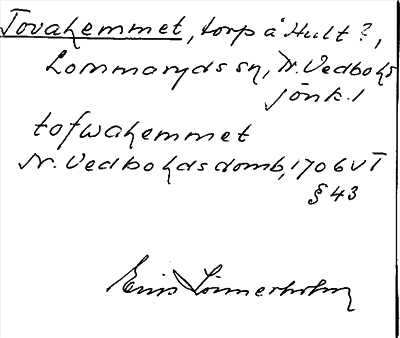 Tovahemmet, torp å Hult?,
Lommaryds sn, N. Vedbo hs
Jönk. l
tofwahemmet
N. Vedbo hds domb, 1706 VT
§ 43
Einis Lönnerholm